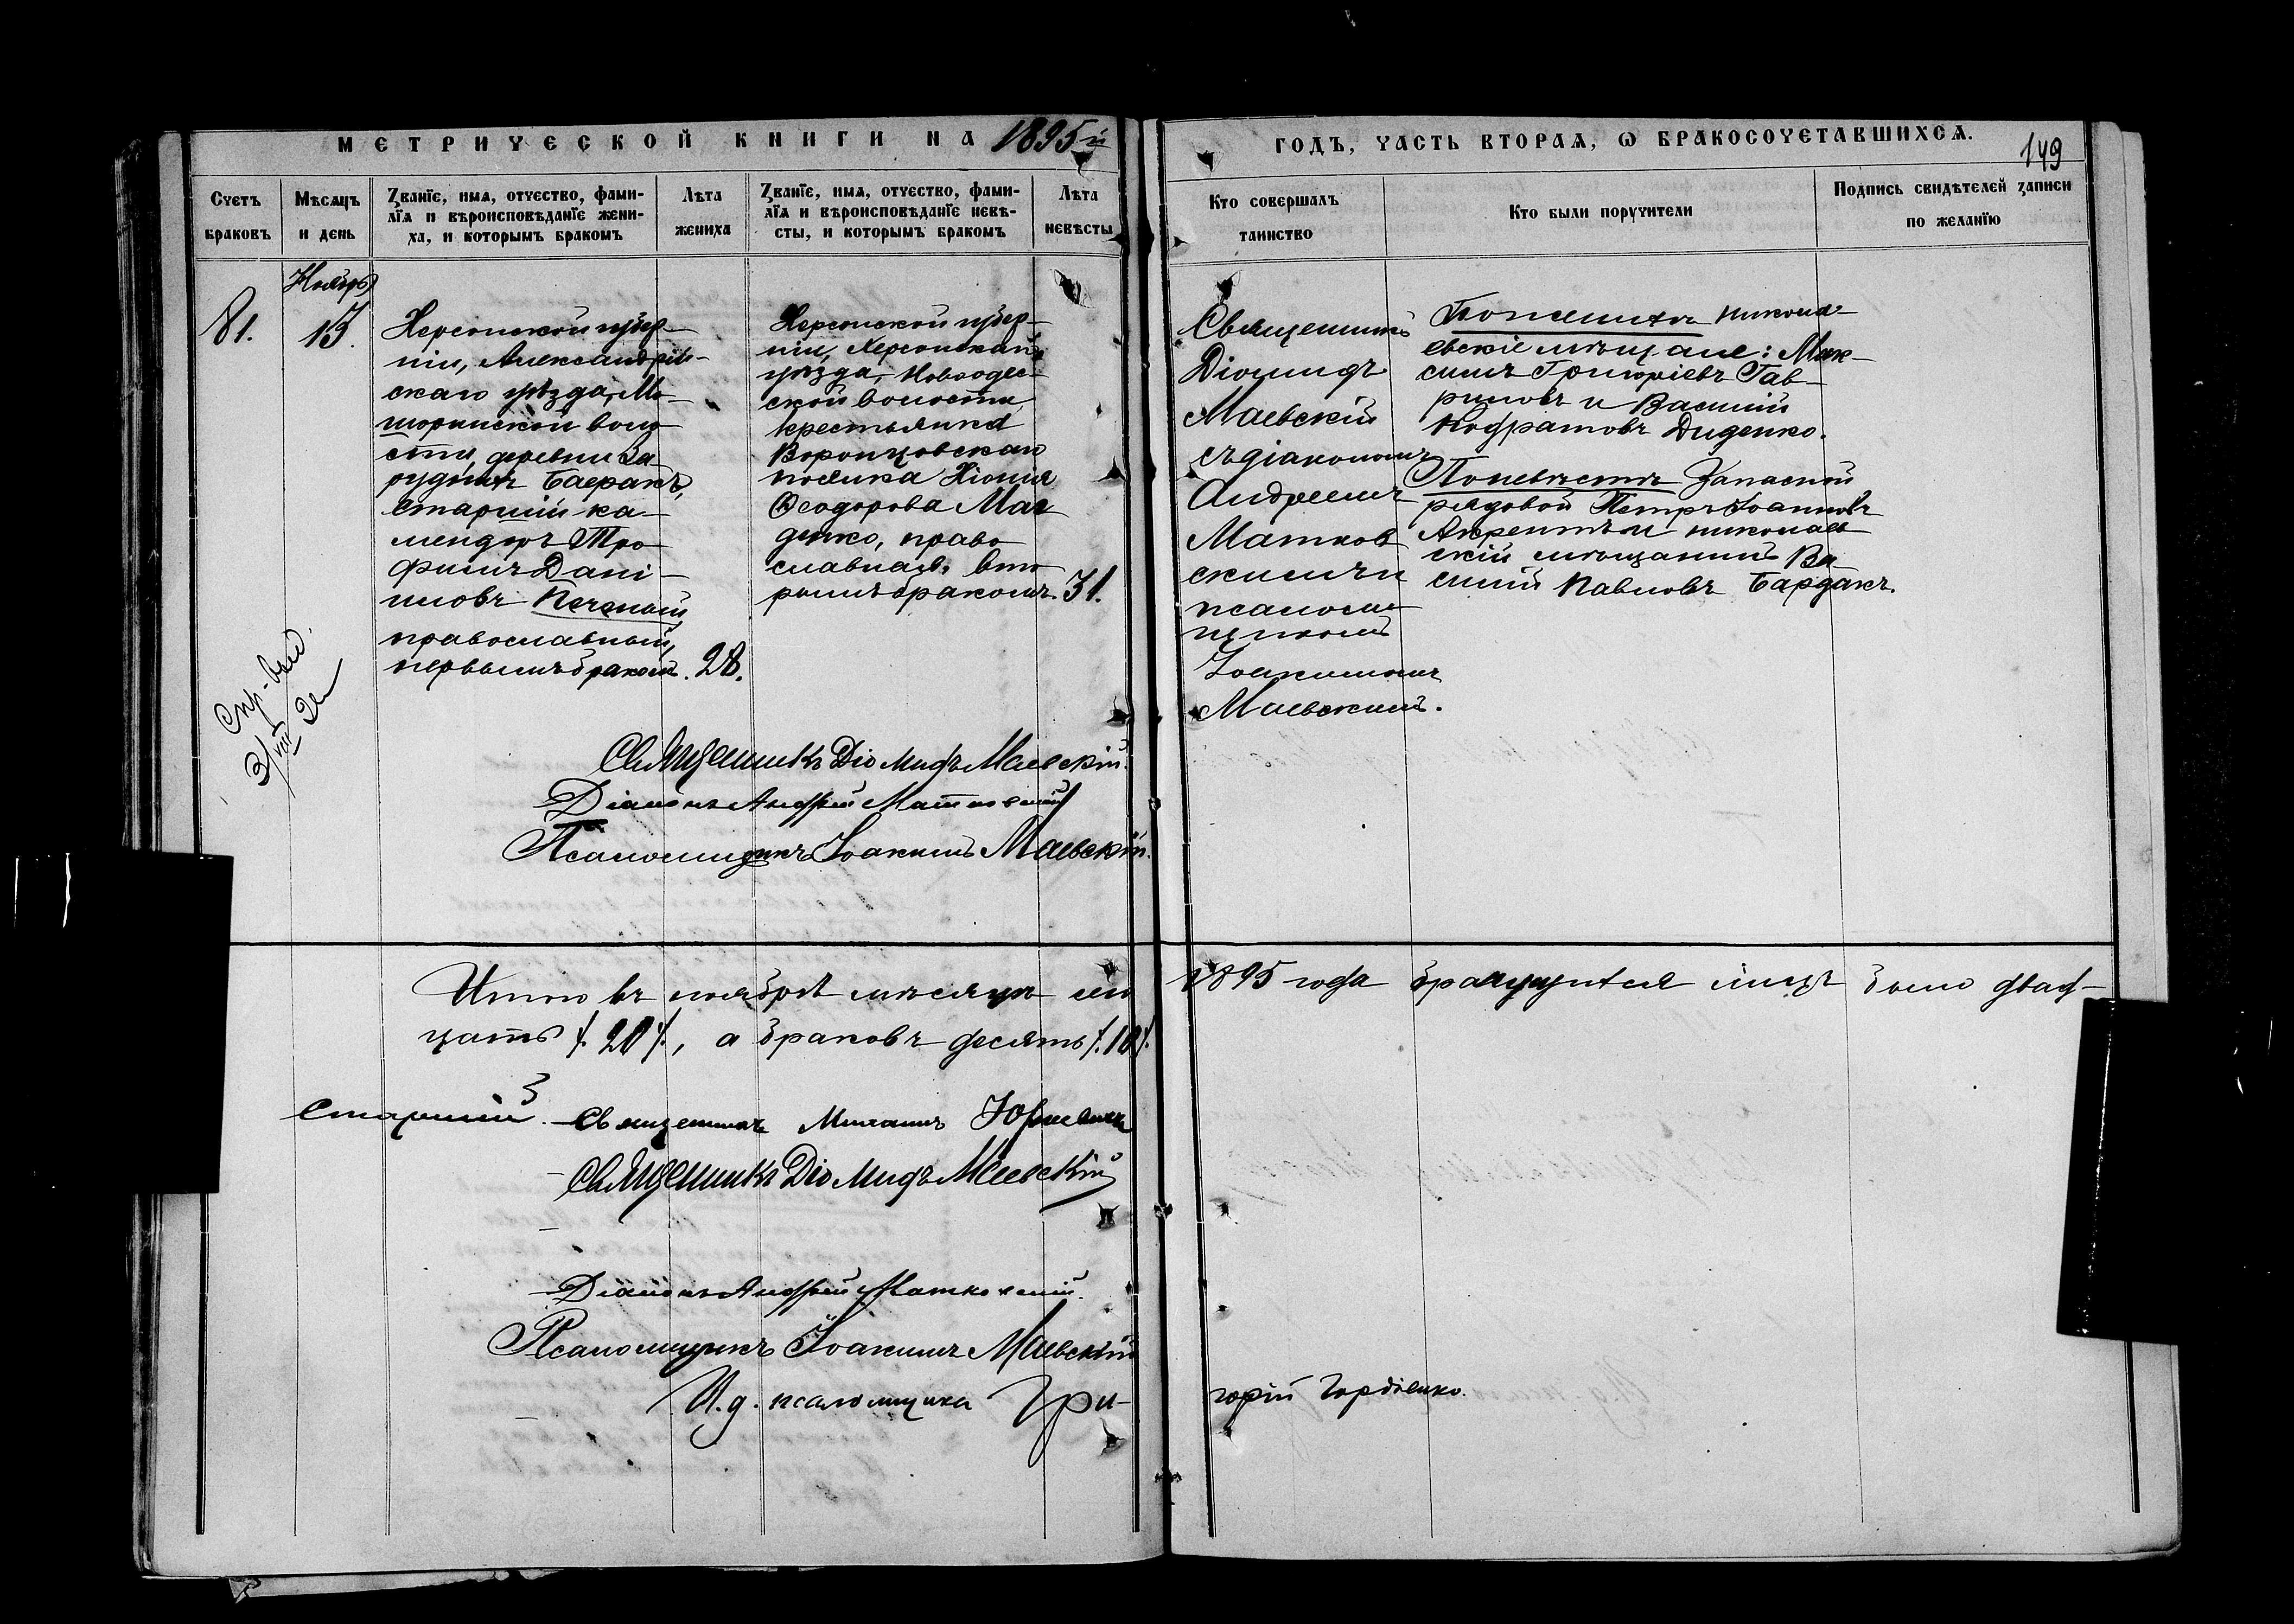 МЕТРИЧЕСКОЙ КНИГИ НА 1895 й
ГОДЪ, ЧАСТЬ ВТОРАЯ, Ѡ БРАКОСОЧЕТАВШИХСЯ.
149
Счетъ браковъ
Мѣсяцъ и день
Званїе, имя, отчество, фами-
лїя и вѣроисповѣданїе жени-
ха, и которымъ бракомъ
Лѣта жениха
Званїе, имя, отчество, фами-
лїя и вѣроисповѣданїе невѣ-
сты, и которымъ бракомъ
Лѣта невѣсты
Кто совершалъ таинство
Кто были поручители
Подпись свидѣтелей записи
по желанїю
Ноябрь
81.
Херсонской губер-
ніи, Александрій-
скаго уѣзда, Мо-
шоринской воло-
сти, деревни За-
Баеракъ,
старшій ка-
мендоръ Тро-
фимъ Дані-
иловъ
православный,
первымъ бракомъ. 28.
Херсонской губер-
ніи, Херсонскаго
уѣзда, Новоодес-
ской волости,
крестьянка
Воронцовскаго
поселка Хіонія
Ѳеодорова
право
славная, вто
рымъ бракомъ. 31.
Священникъ
Діомидъ
Маевскій
съ діакономъ
Андреемъ
Матков
скимъ и
псаломщ
щикомъ
Іоакимомъ
Маевскимъ.
По женихѣ никола-
евскіе мѣщане: Мак-
симъ Григоріевъ Гав-
риловъ и Василій
Кодратовъ Диденко.
По невѣстѣ запасной
рядовой Петръ Іоанновъ
и николаев
скій мѣщанинъ Ва-
силій Павловъ Бардакъ.
Священникъ Діомидъ Маевскій.
Діаконъ Андрей Матковскій
Псаломщикъ Іоакимъ Маевскій.
Итого въ ноябрѣ мѣсяцѣ сего 1895 года брачущихся лицъ было двад-
цать /. 20 /., а браковъ десять /. 10 /.
Старшій Священникъ Михаилъ Юркевичъ
Священникъ Діомидъ Маевскій
Діаконъ Андрей Матковскій.
Псаломщикъ Іоакимъ Маевскій
И. д. псаломщика Гри-
горій Гордіенко.